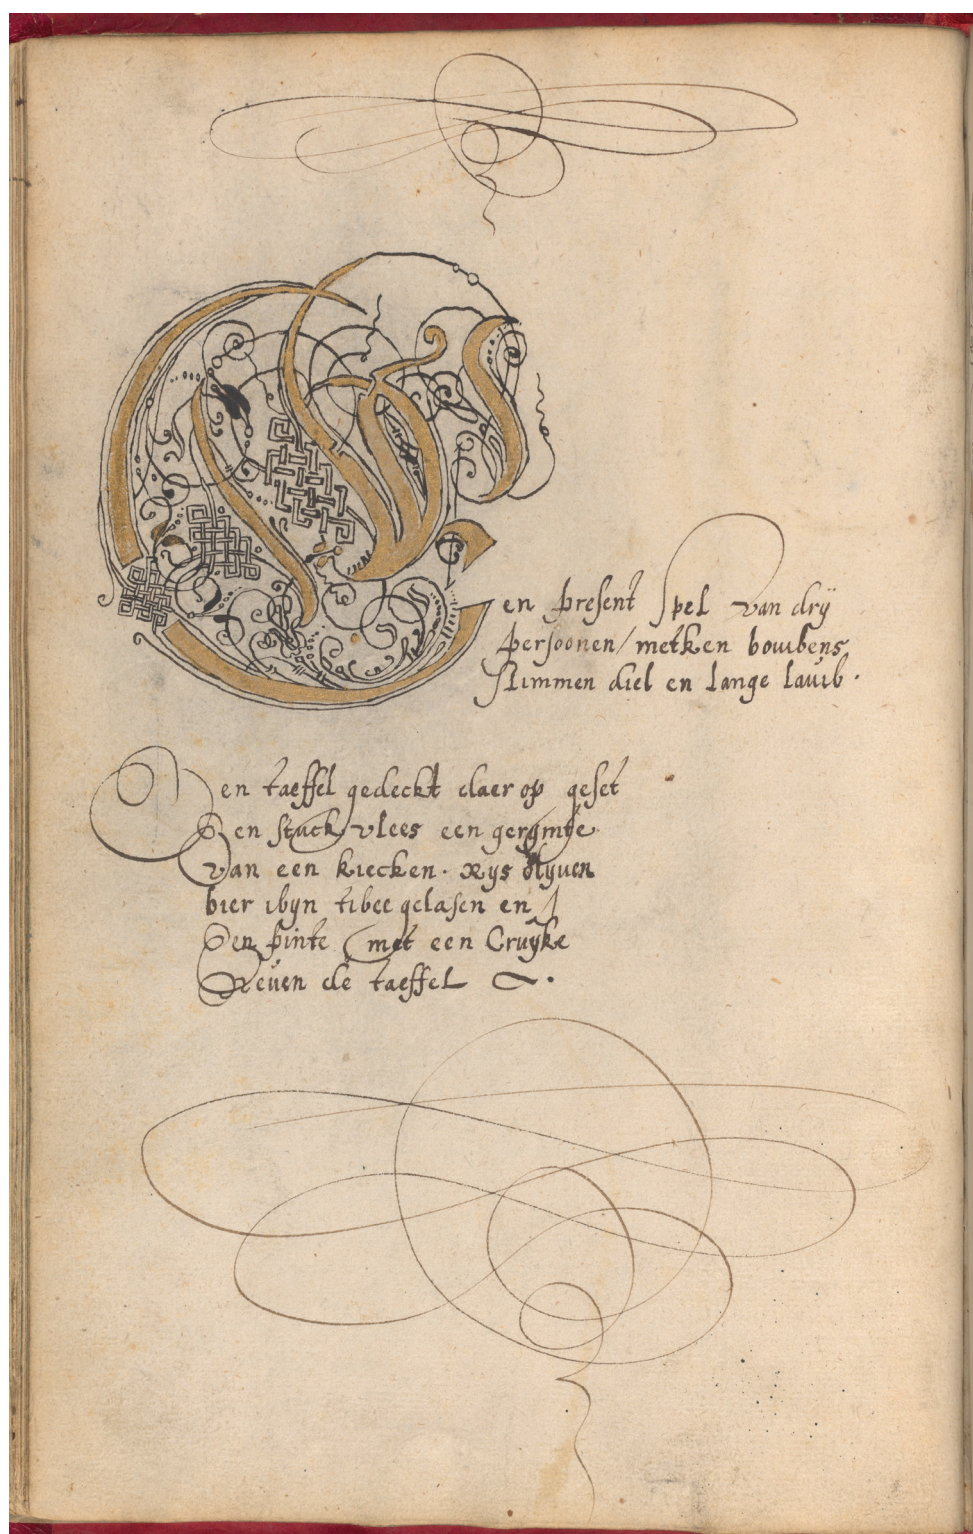 Een present spel van drÿ
persoonen / metken bouwens
slimmen diel en lange lauw.
Een taeffel gedeckt daer op geset
Een stuck vlees een
van een kiecken. rys olyven
bier wyn twee gelasen en
Een pinte met een Cruÿke
Neven de taeffel